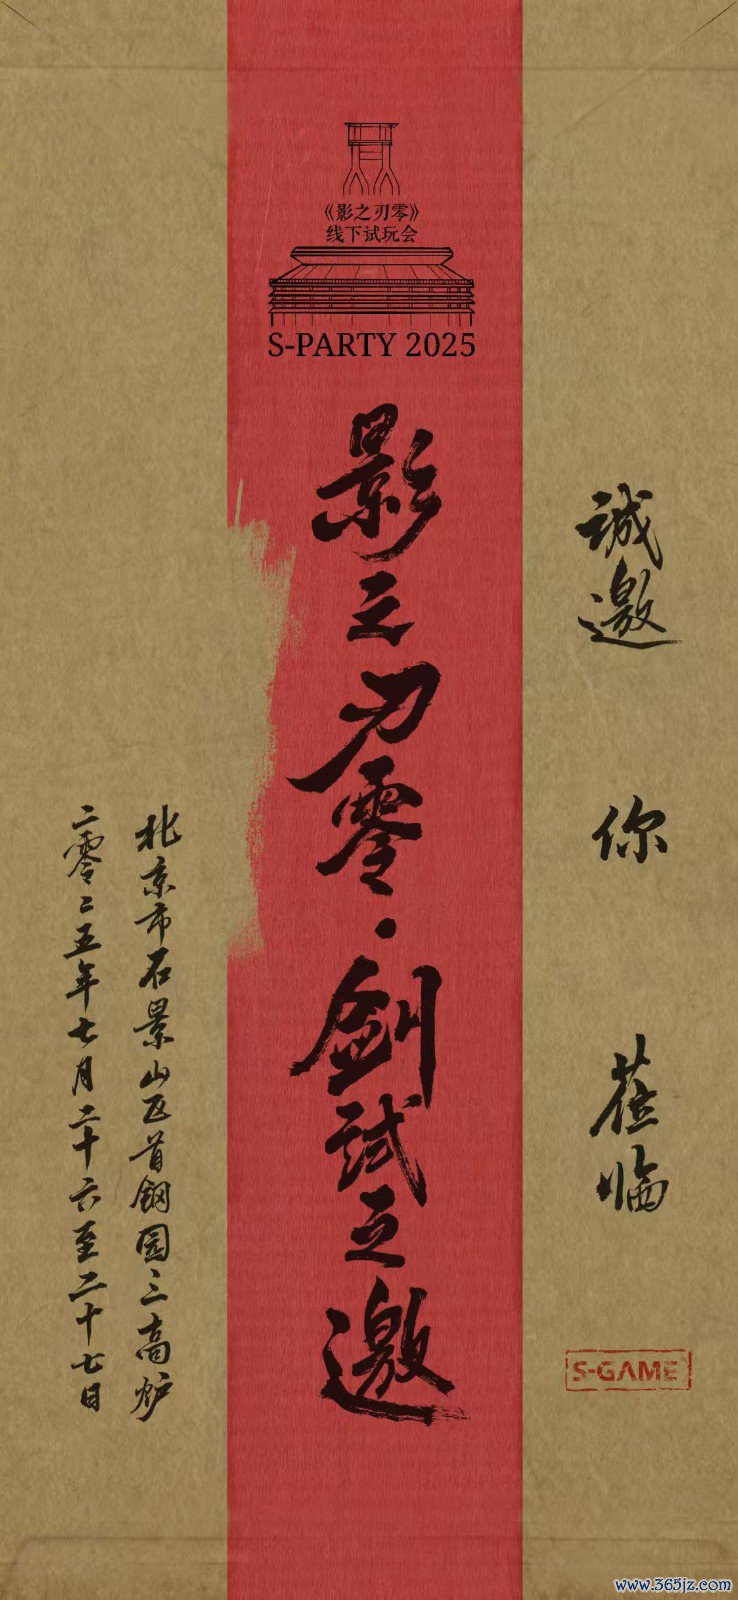 《影之刃零》
线下试玩会
S-PARTY 2025
诚邀
你
莅临
S-GAME
影之刃零·剑试之邀
北京市石景山区首钢园三高炉
二零二五年七月二十六至二十七日
www.365jz.com